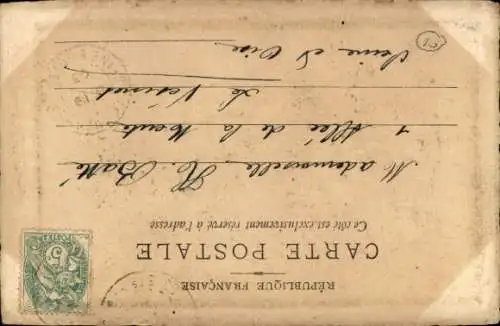 RÉPUBLIQUE FRANÇAISE
CARTE POSTALE
Ce côté est exclusivement réservé à l'adresse
Mademoiselle H. Batté
1 Allée de la Meute
Le Vésinet
Seine et Oise